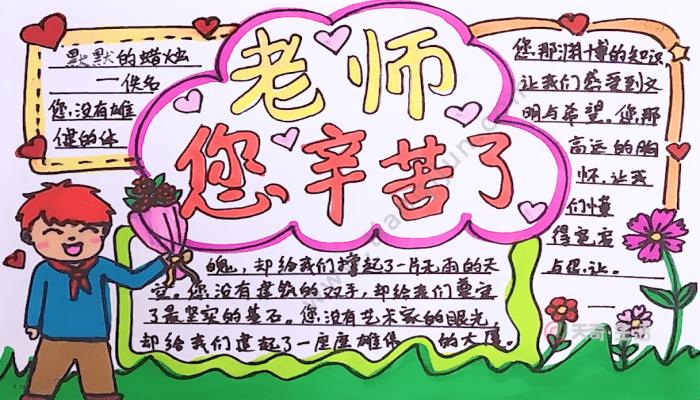 老师
您辛苦了
默默的蜡烛
——佚名
您,没有雄
健的体
魄,却给我们撑起了一片无雨的天
空。您没有建筑的双手,却给我们奠定
了最坚实的基石。您没有艺术家的眼光
却给我们建起了一座座雄伟的大厦。
您那渊博的知识
让我们感受到文
明与希望。您那
高远的胸
怀,让我
们懂
得宽容
与忍让。
天奇生活